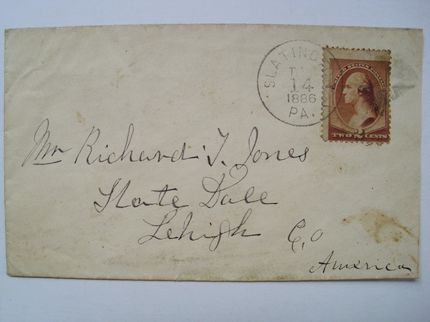 SLATING
14
1886
PA.
TWO 2 CENTS
Mr Richard T. Jones
Slate Dale
Lehigh Co
America